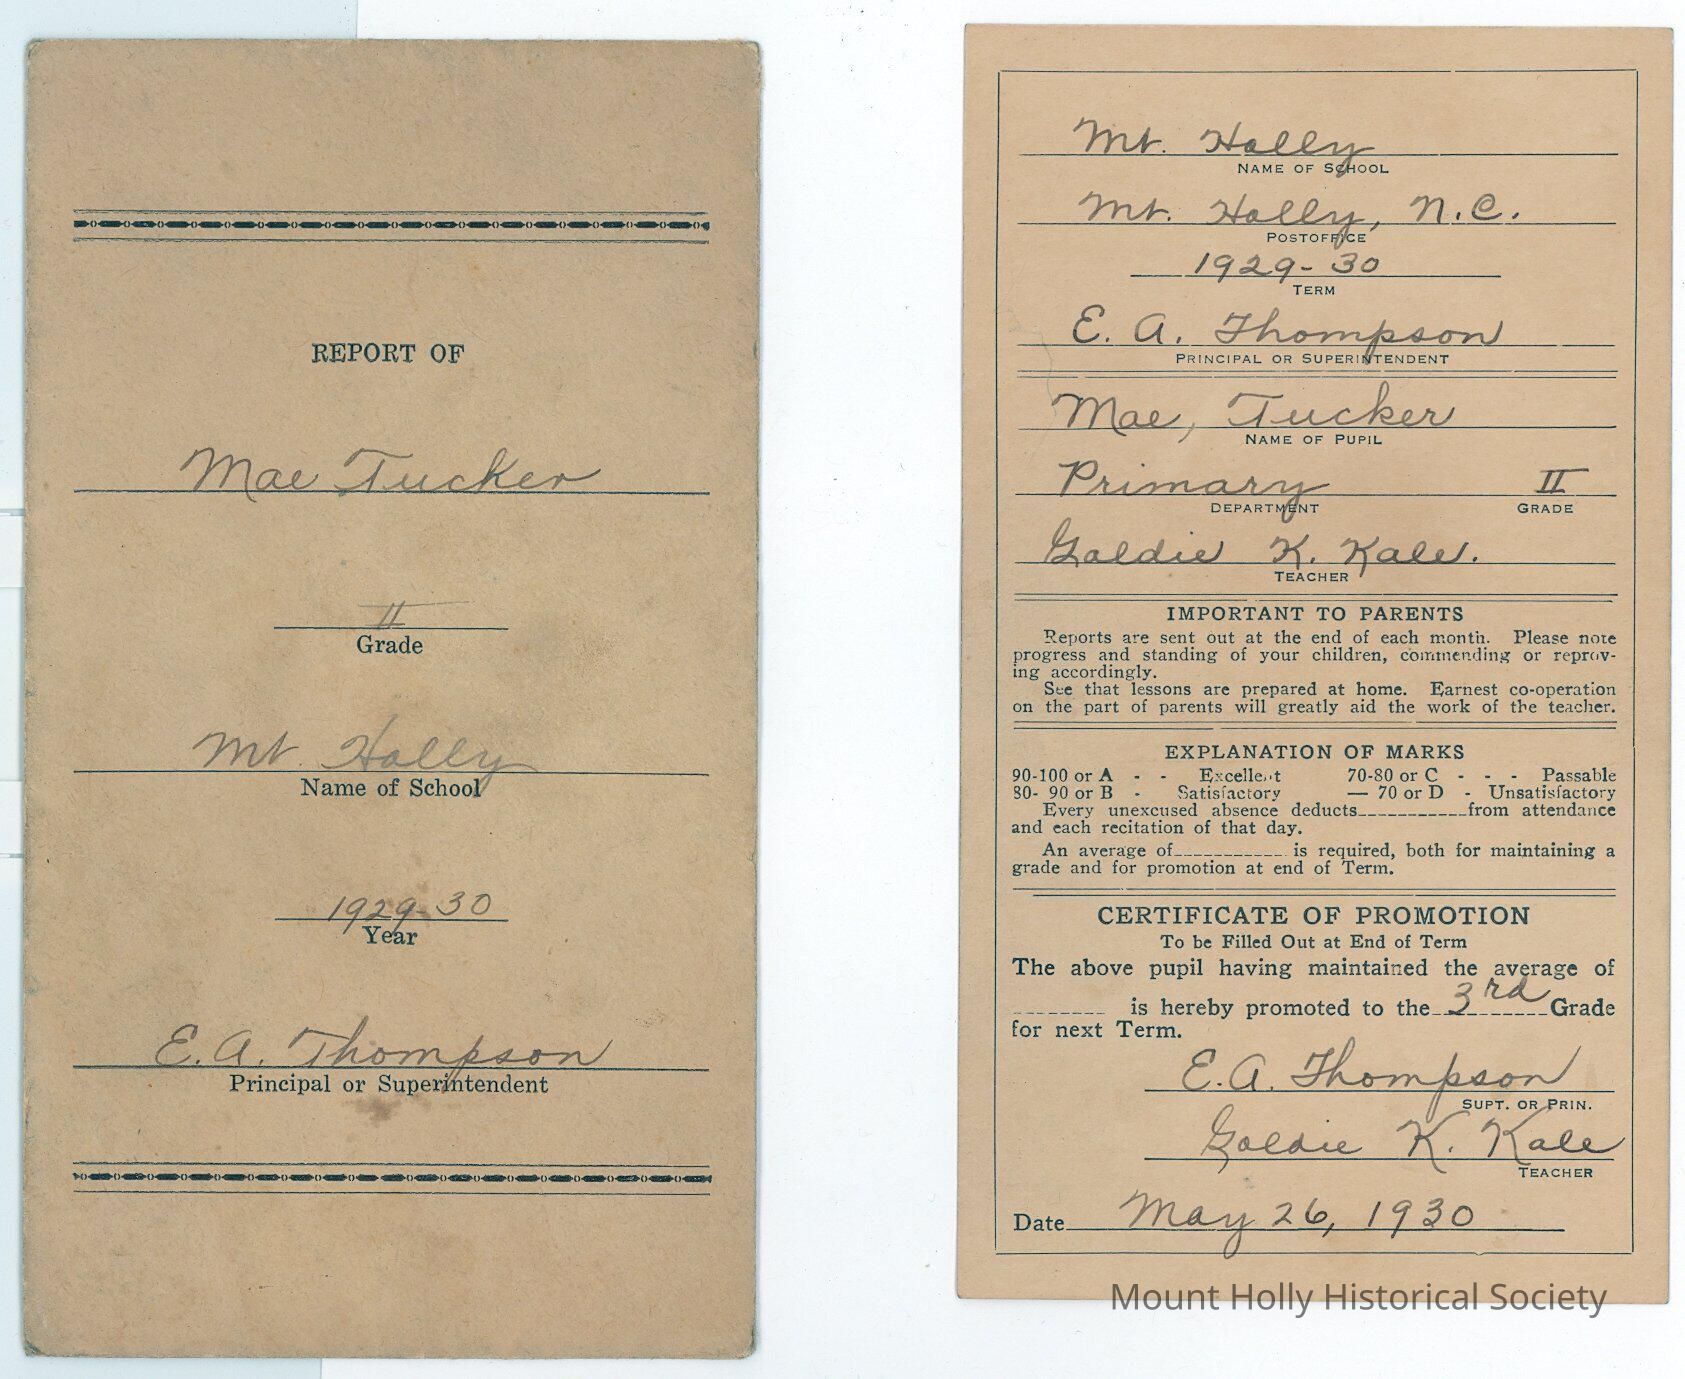 REPORT OF
Mae Tucker
II
Grade
Mt. Holly
Name of School
1929-30
Year
E. A. Thompson
Principal or Superintendent
Mt. Holly
NAME OF SCHOOL
Mt. Holly, N.C.
POSTOFFICE
1929-30
TERM
E. A. Thompson
PRINCIPAL OR SUPERINTENDENT
Mae, Tucker
NAME OF PUPIL
Primary II
DEPARTMENT GRADE
Goldie K. Kale.
TEACHER
IMPORTANT TO PARENTS
Reports are sent out at the end of each month. Please note
progress and standing of your children, commending or reprov-
ing accordingly.
See that lessons are prepared at home. Earnest co-operation
on the part of parents will greatly aid the work of the teacher.
EXPLANATION OF MARKS
90-100 or A - - Excellent 70-80 or C - - - Passable
80- 90 or B - Satisfactory — 70 or D - Unsatisfactory
Every unexcused absence deducts___________from attendance
and each recitation of that day.
An average of___________ is required, both for maintaining a
grade and for promotion at end of Term.
CERTIFICATE OF PROMOTION
To be Filled Out at End of Term
The above pupil having maintained the average of
________ is hereby promoted to the 3rd Grade
for next Term.
E. A. Thompson
SUPT. OR PRIN.
Goldie K. Kale
TEACHER
Date May 26, 1930
Mount Holly Historical Society